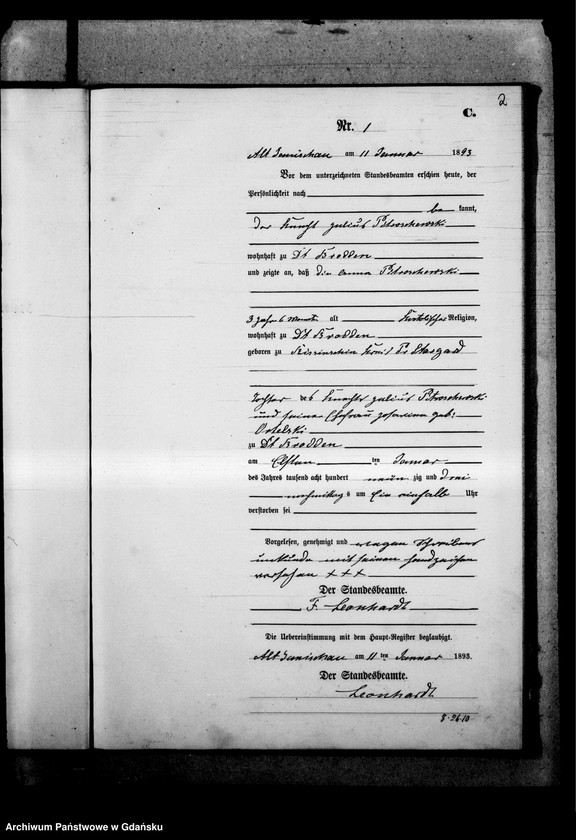 2
C.
Nr. 1
Alt Janischau am 11 Januar 1893
Vor dem unterzeichneten Standesbeamten erschien heute, der
Persönlichkeit nach
be kannt,
der Knecht Julius
wohnhaft zu Dt Brodden
und zeigte an, daß die Anna
3 Jahr 6 Monate alt Katolischer Religion,
wohnhaft zu Dt Brodden
geboren zu Kreis Pr Stargard
Tochter des Knechts Julius
und seine Ehefrau geb:
zu Dt Brodden
am Elften ten Januar
des Jahres tausend acht hundert neun zig und drei
nachmittag s um Ein einhalb Uhr
verstorben sei
Vorgelesen, genehmigt und wegen Schreibens
unkunde mit seinen Handzeichen
versehen + + +
Der Standesbeamte.
F. Leonhardt
Die Uebereinstimmung mit dem Haupt-Register beglaubigt.
Alt Janischau am 11 ten Januar 1893.
Der Standesbeamte.
Leonhardt
8·26·10
Archiwum Państwowe w Gdańsku